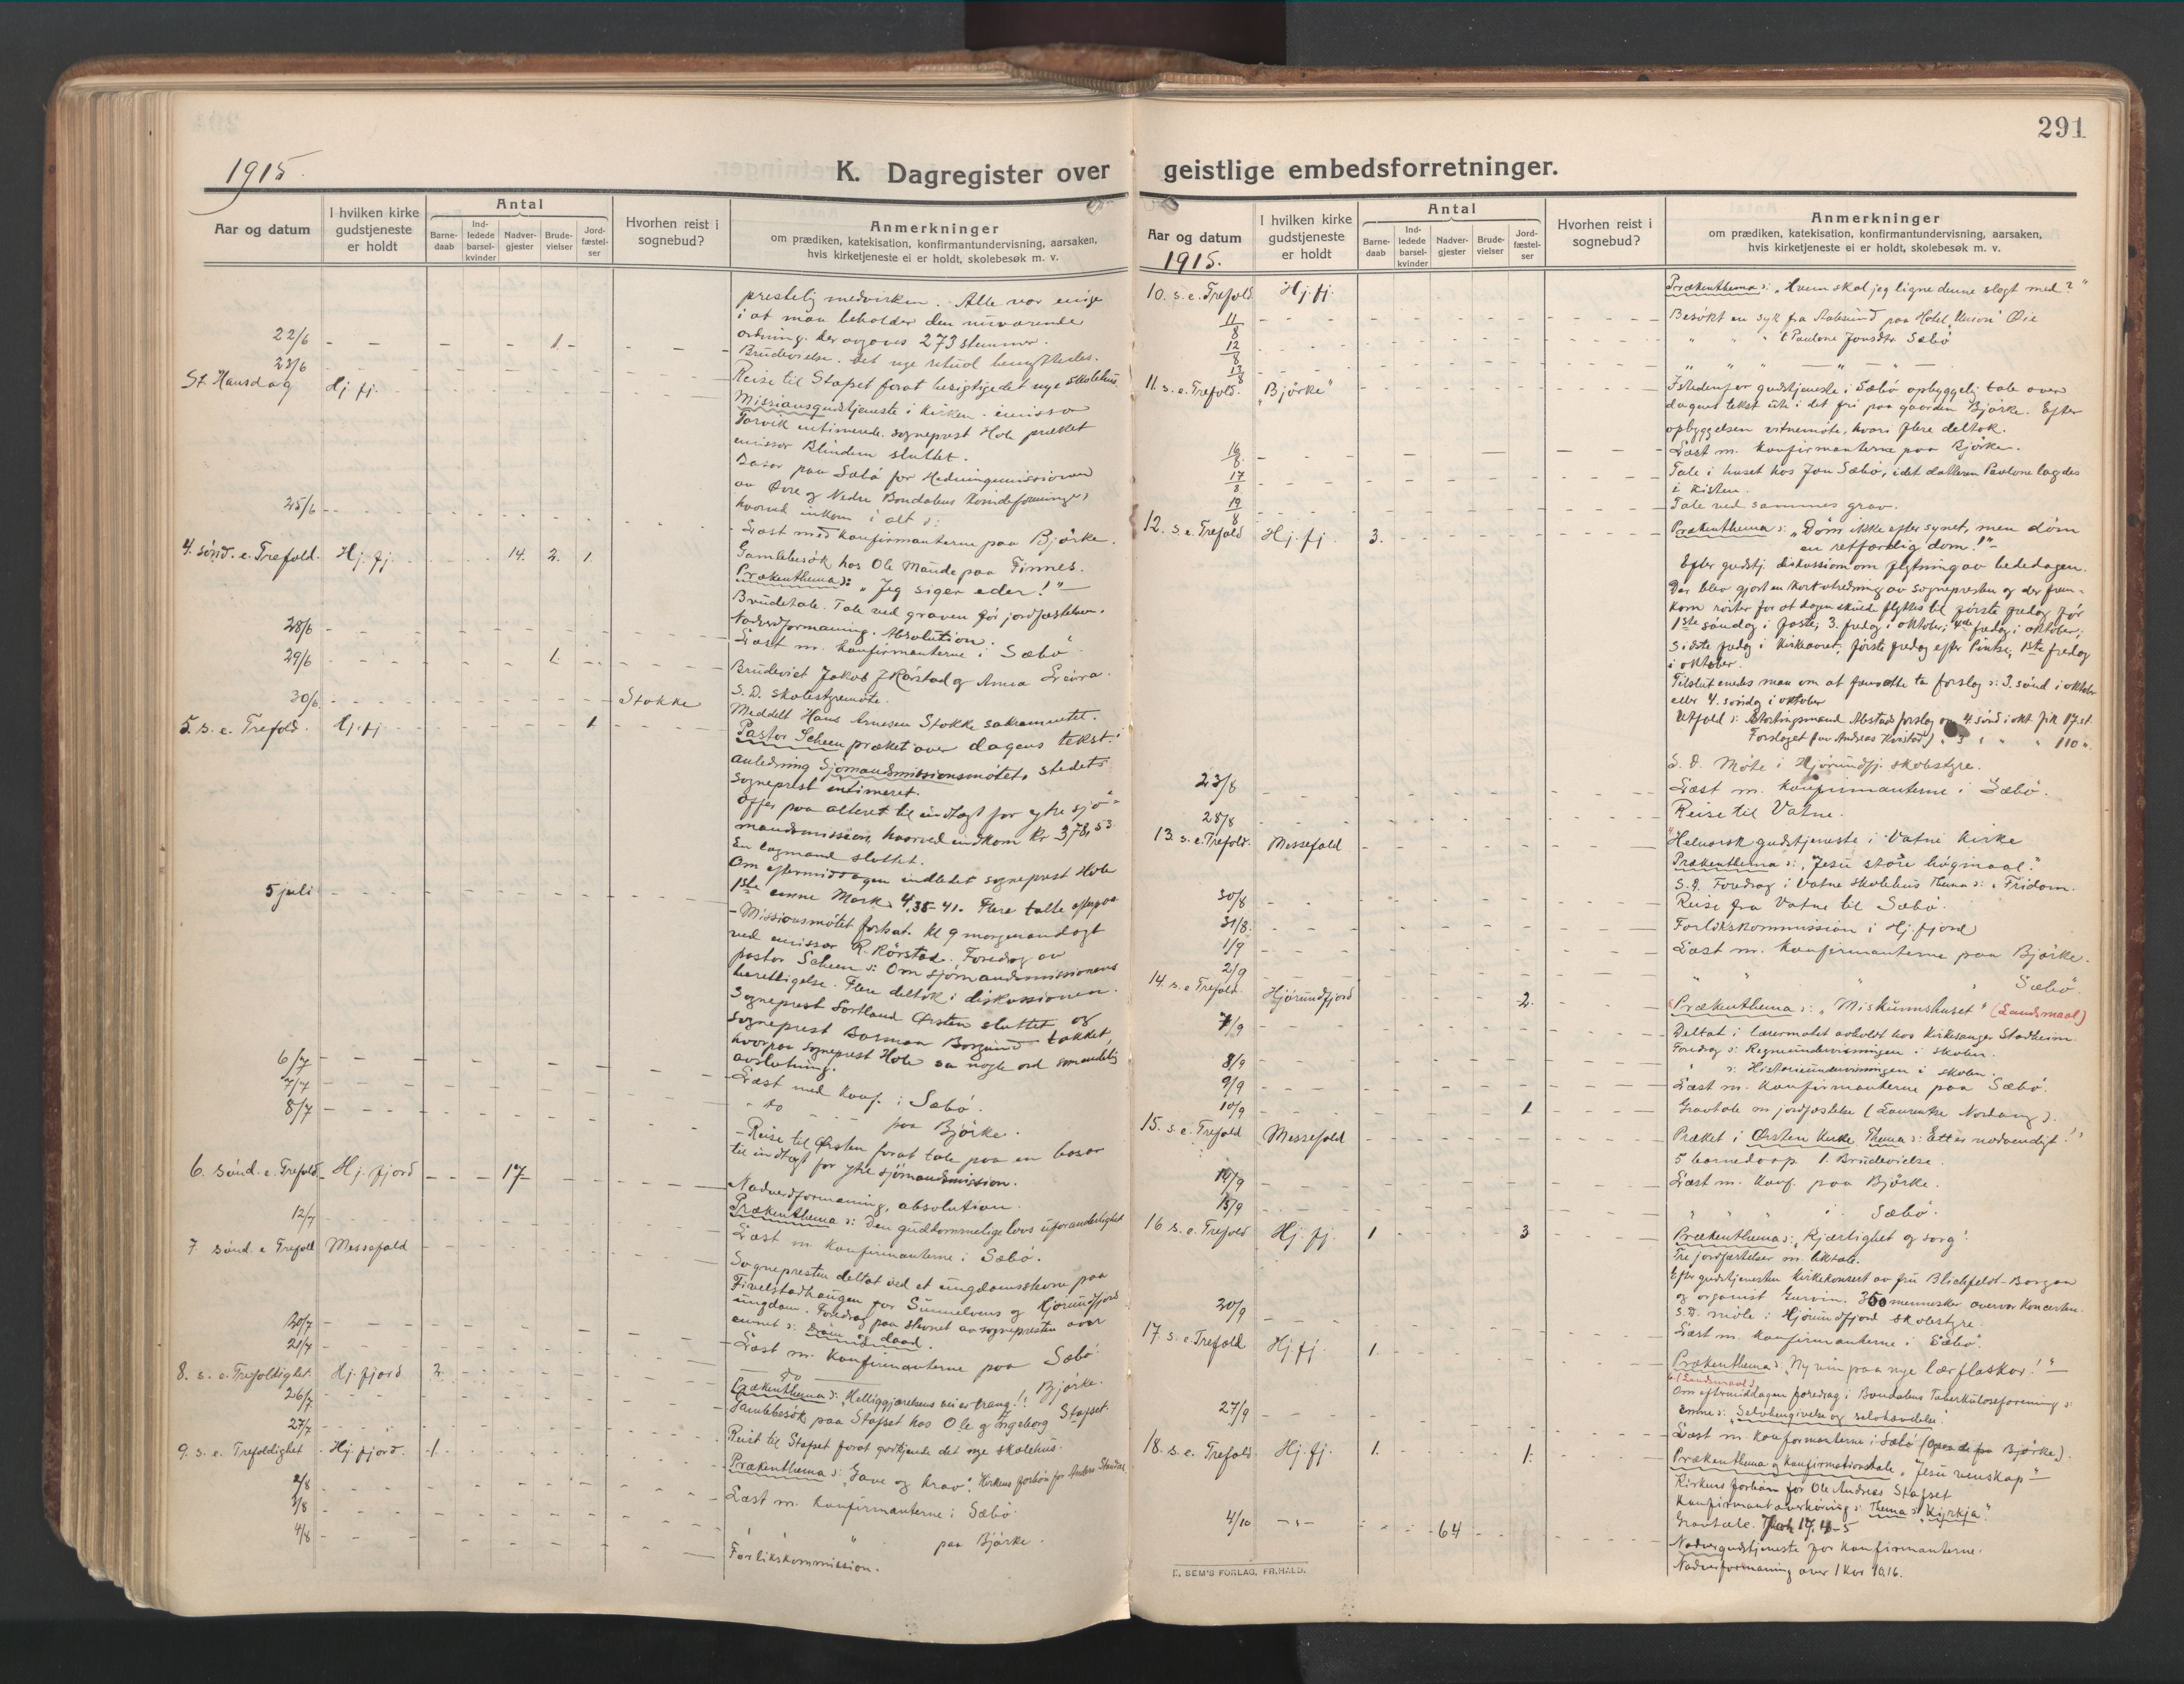 291
1915.
K. Dagregister over geistlige embedsforretninger.
Aar og datum
I hvilken kirke gudstjeneste er holdt
Antal
Barne-daab
Ind-ledede barsel-kvinder
Nadver-gjester
Brude-vielser
Jord-fæstel-ser
Hvorhen reist i sognebud?
Anmerkninger
om prædiken, katekisation, konfirmantundervisning, aarsaken,
hvis kirketjeneste ei er holdt, skolebesøk m. v.
prestelig medvirken. Alle var enige
i at man beholder den nuværende
ordning. Der avgaves 273 stemmer.
22/6 1. Brudevielse. Det nye ritual benyttedes.
23/6 Reise til Stafset forat besigtige det nye skolehus.
St. Hansdag Hj. fj. Missionsgudstjeneste i kirken. emissær
Torvik intimerede. sogneprest Hole præket
emissær Blindem sluttet.
Basar paa Sæbø for Hedningemissionen
av Øvre og Nedre Bondalens Kvindeforeninger
hvorved inkom i alt s:
25/6 Læst med konfirmanterne paa Bjørke.
4. sønd. e. Trefold. Hj. fj. 14. 2. 1. Gamlebesøk hos Ole Maude paa Finnes.
Prækenthema s: "Jeg siger eder!"
Brudetale. Tale ved graven før jordfæstelsen.
Nadverdformaning. Absolution.
28/6 Læst m. konfirmanterne i Sæbø
29/6 1. Brudeviet Jakob J Rørstad og Anna Leira.
S. D. skolestyremøte.
30/6 Stokke Meddelt Hans Arnesen Stokke sakramentet.
5. s. e. Trefold. Hj. fj. 1. Pastor Scheen præket over dagens tekst i
anledning Sjømandsmissionsmøtet, stedets
sogneprest intimeret.
Offer paa alteret til indtægt for ytre sjø-
mandsmission, hvorved indkom Kr 378,53.
En lægmand sluttet.
Om eftermiddagen indledet sogneprest Hole
1ste emne Mark. 4,35-41. Flere talte efterpaa
5 juli - Missionsmøtet fortsat. Kl 9 morgenandagt
ved emissær R. Rørstad. Foredrag av
pastor Scheen s: Om sjømandsmissionens
berettigelse. Flere deltok i diskussionen.
Sogneprest Sortland Ørsten sluttet og
sogneprest Barman Borgund takket,
hvorpaa sogneprest Hole sa nogle ord
avslutning.
6/7 Læst med konf. i Sæbø.
7/7 " do paa Bjørke.
8/7 - Reise til Ørsten forat tale paa en basar
til indtægt for ytre sjømandsmission.
6. sønd. e. Trefold. Hj. fjord 17 Nadverdformaning, absolution.
Prækenthema s: Den guddommelige lovs uforanderlighet
12/7 Læst m. konfirmanterne i Sæbø.
7. sønd. e Trefold Messefald Sognepresten deltat ved et ungdomsstevne paa
Fivelstadhaugen for Sunnelvens og Hjørundfjord
ungdom. Foredrag paa stevnet av sognepresten over
emnet s: Drøm og daad.
20/7 Læst m. konfirmanterne paa Sæbø
21/7 do Bjørke.
8. s. e. Trefoldighet Hj. fjord 2. Prækenthema s: "Helliggjørelsens vei er trang!"
26/7 Gamlebesøk paa Stafset hos Ole og Ingeborg Stafset.
27/7 Reist til Stafset forat godkjende det nye skolehus.
9. s. e. Trefoldighet Hj. fjord. 1. Prækenthema s: "Gave og krav". Kirkens forbøn for Anders Standal
2/8 Læst m. konfirmanterne i Sæbø.
3/8 " " paa Bjørke.
4/8 Forlikskommission.
Aar og datum
1915.
I hvilken kirke gudstjeneste er holdt
Antal
Barne-daab
Ind-ledede barsel-kvinder
Nadver-gjester
Brude-vielser
Jord-fæstel-ser
Hvorhen reist i sognebud?
Anmerkninger
om prædiken, katekisation, konfirmantundervisning, aarsaken,
hvis kirketjeneste ei er holdt, skolebesøk m. v.
10. s. e. Trefold Hj. fj. Prækenthema s: "Hvem skal jeg ligne denne slegt med?"
11/8 Besøkt en syk fra Aalesund paa Hotel "Union" Øie
12/8 " " " Paulone Jonsdtr Sæbø
13/8 " " — " — " —
11. s. e. Trefold. "Bjørke" Istedenfor gudstjeneste i Sæbø opbyggelig tale over
dagens tekst ute i det fri paa gaarden Bjørke. Efter
opbyggelsen vitnemøte, hvori flere deltok.
16/8 Læst m. konfirmanterne paa Bjørke.
17/8 Tale i huset hos Jon Sæbø, idet datteren Paulone lagdes
i kisten.
19/8 Tale ved sammes grav.
12. s. e. Trefold Hj. fj. 3. Prækenthema s: "Døm ikke efter synet, men døm
en retfærdig dom!"
Efter gudstj. diskussion om flytning av bededagen.
Der blev gjort en kort utredning av sognepresten og der frem-
kom røster for at dagen skulde flyttes til første fredag før
1ste søndag i faste; 3. fredag i oktober; 4de fredag i oktober;
Sidste fredag i kirkeaaret; første fredag efter Pintse, 1ste fredag
i oktober.
Tilslut enedes man om at fremsætte to forslag s: 3. sønd i oktober
eller 4. søndag i oktober
Utfald s: Stortingsmand Abstads forslag om 4. sønd i okt fik 17 st.
Forslaget (av Andreas Kvistad) " 3 " " " 110 "
S. D. Møte i Hjørundfj. skolestyre.
23/8 Læst m. konfirmanterne i Sæbø.
28/8 Reise til Vatne.
13. s. e. Trefold. Messefald "Helnorsk gudstjeneste i Vatne kirke
Prækenthema s: "Jesu store høgmaal".
S. D. Foredrag i Vatne skolehus Thema s: "Fridom.
30/8 Reise fra Vatne til Sæbø.
31/8. Forlikskommission i Hj. fjord
1/9 Læst m. konfirmanterne paa Bjørke.
2/9 " " " Sæbø.
14. s. e Trefold. Hjørundfjord 2. Prækenthema s: "Miskunnshuset" (Landsmaal)
7/9 Deltat i lærermøtet avholdt hos kirkesanger Stadheim
Foredrag s: Regneundervisningen i skolen.
s: Historieundervisningen i skolen.
8/9 Læst m. konfirmanterne paa Sæbø.
9/9
10/9 1. Gravtale m. jordfæstelse (Laurentse Nordang).
15. s. e. Trefold Messefald Præket i Ørsten kirke Thema s: Ett er nødvendigt!"
5 barnedaap. 1. Brudevielse.
14/9 Læst m. konf. paa Bjørke.
15/9 " " " i Sæbø.
16 s. e. Trefold Hj. fj. 1 3 Prækenthema s: "Kjærlighet og sorg".
Tre jordfæstelser m. liktale.
Efter gudstjenesten kirkekonsert av fru Blichfeldt-Borgan
og organist Gurvin. 350 mennesker overvar koncerten.
S. D. møte i Hjørundfjord skolestyre.
20/9 Læst m. konfirmanterne i Sæbø.
17. s. e Trefold Hj. fj. 1. Prækenthema s: "Ny vin paa nye lærflaskor!"
(Landsmaal)
Om eftermiddagen foredrag i Bondalens Tuberkuloseforening s:
Emne s: "Selvhengivelse og
27/9 Læst m. konfirmanterne i Sæbø (Bjørke).
18. s. e. Trefold Hj. fj. 1. 1. Prækenthema og konfirmationstale "Jesu venskap"
Kirkens forbøn for Ole Andreas Stafset
Konfirmantoverhøring s: Thema s: "Kyrkja".
Gravtale. Joh 17, 4-5
4/10 — " — 64 Nadvergudstjeneste for konfirmanterne.
Nadverformaning over 1 Kor 10.16.
E. SEM'S FORLAG, FR.HALD.